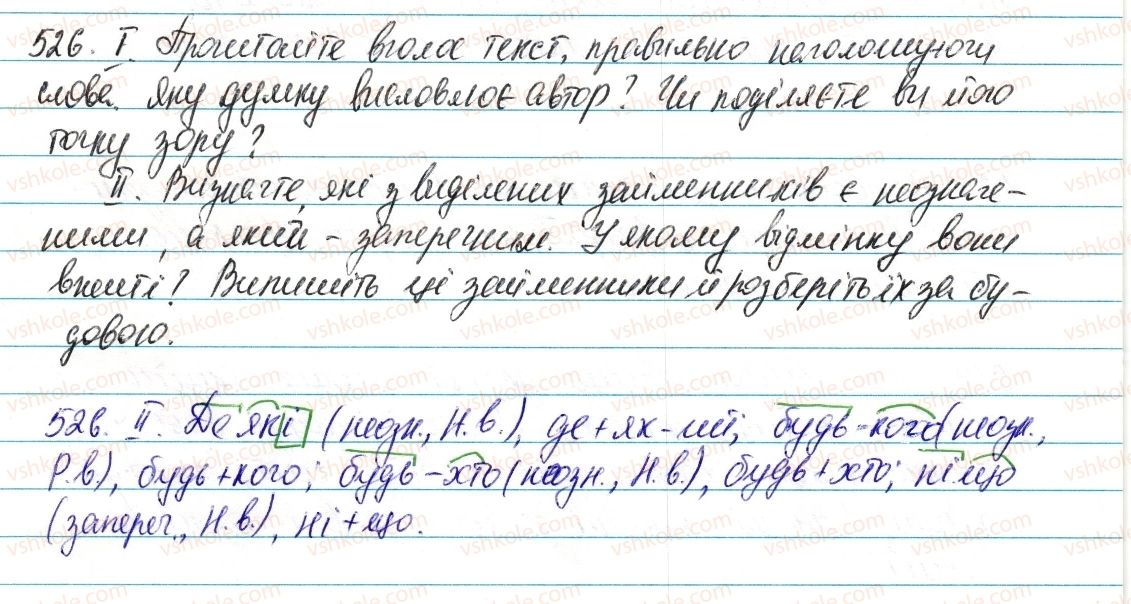 526. I. Прочитайте вголос текст, правильно наголошуючи
слова. Яку думку висловлює автор? Чи поділяєте ви його
точку зору?
II. Визначте, які з виділених займенників є неозначе-
ними, а який - заперечним. У якому відмінку вони
вжиті? Випишіть ці займенники й розберіть їх за бу-
довою.
526. II. Деякі (неозн., Н.в.), де+як-ий; будь-кого (неозн.,
Р.в), будь+кого; будь-хто (неозн., Н.в.), будь+хто; ніщо
(запереч., Н.в.), ні+що.